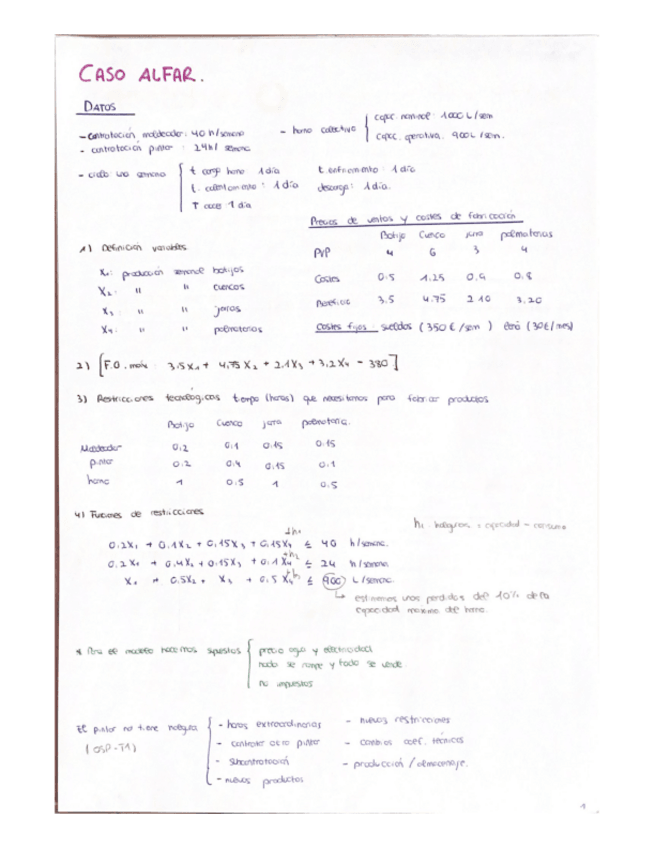 CASO ALFAR.
DATOS
- Contratación moldeador: 40 h/semana
- contratación pintor : 24h/ semana
- horno colectivo
capac. nominal: 1000 L/sem
capac. operativa. 900L/sem.
- ciclo una semana
t carga horno 1 día
t. calentamiento : 1 día
T 1 día
t enfriamiento : 1 día
descarga: 1 día.
1) Definición variables
X1: producción semanal botijos
X2: " " cuencos
X3: " " jarras
X4: " " palmatorias
Precios de ventas y costes de fabricación
Botijo Cuenco jarra palmatorias
PVP 4 6 3 4
Costes 0.5 1.25 0.9 0.8
Beneficios 3.5 4.75 2.10 3.20
Costes fijos: sueldos (350€/sem) (30€/mes)
2) [F.O. máx : 3.5X1 + 4.75X2 + 2.1X3 + 3.2X4 - 380]
3) Restricciones tecnológicas tiempo (horas) que necesitamos para fabricar productos
Botijo Cuenco jarra palmatoria.
Moldeador 0.2 0.1 0.15 0.15
pintor 0.2 0.4 0.15 0.1
horno 1 0.5 1 0.5
4) Funciones de restricciones
hi: holguras = capacidad - consumo
0.2X1 + 0.1X2 + 0.15X3 + 0.15X4 +h1 ≤ 40 h/semana.
0.2X1 + 0.4X2 + 0.15X3 + 0.1X4 +h2 ≤ 24 h/semana.
X1 + 0.5X2 + X3 + 0.5X4 +h3 ≤ 900 L/semana.
↳ estimamos unas perdidas del 10% de la
capacidad maxima del horno.
* Para el modelo hacemos supuestos
precio agua y electricidad
nada se rompe y todo se vende
no impuestos
El pintor no tiene holgura
(OSP-T1)
- horas extraordinarias
- contratar otro pintor
- subcontratación
- nuevos productos
- nuevas restricciones
- cambios coef. técnicos
- producción / almacenaje.
1